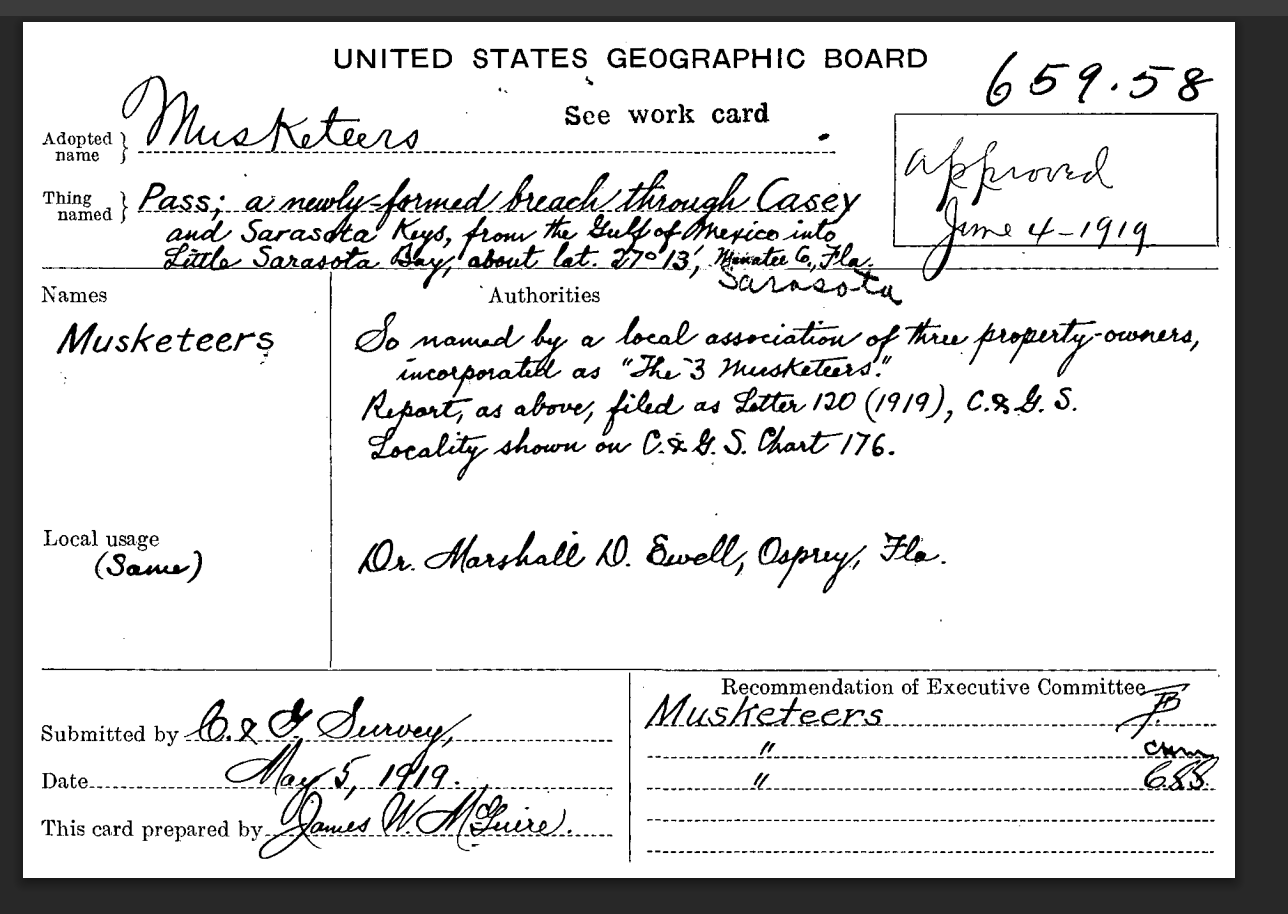 UNITED STATES GEOGRAPHIC BOARD
659.58
See work card
Adopted name } Musketeers
Approved
June 4-1919
Thing named } Pass; a newly-formed breach through Casey
and Sarasota Keys, from the Gulf of Mexico into
Little Sarasota Bay, about lat. 27°13', Manatee Co., Fla.
Sarasota
Names
Authorities
Musketeers
So named by a local association of three property-owners,
incorporated as "The 3 Musketeers."
Report, as above, filed as Letter 120 (1919), C.& G. S.
Locality shown on C.& G. S. Chart 176.
Local usage
(Same)
Dr. Marshall D. Ewell, Osprey, Fla.
Submitted by C. & G Survey,
Date May 5, 1919.
This card prepared by James W. McGuire.
Recommendation of Executive Committee
Musketeers
"
"